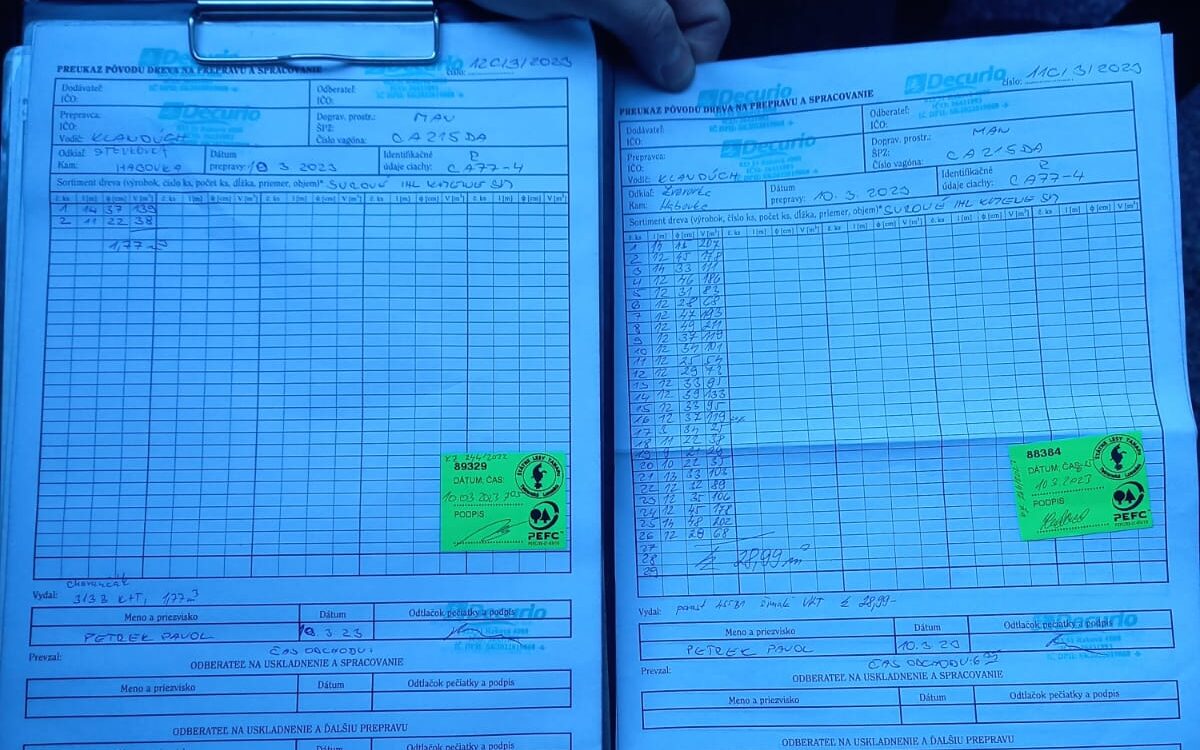 Decurio
PREUKAZ PÔVODU DREVA NA PREPRAVU A SPRACOVANIE
Decurio
číslo: 12C/3/2023
Dodávateľ:
IČO:
Odberateľ:
IČO:
Prepravca:
IČO:
Vodič: KLAVDÚCH
Decurio
Doprav. prostr.: MAN
ŠPZ:
Číslo vagóna: CA215DA
Odkiaľ:
Kam: HABOVKA
Dátum
prepravy: 10 3 2023
Identifikačné
údaje ciachy: CA77-4
Sortiment dreva (výrobok, číslo ks, počet ks, dĺžka, priemer, objem)* SUROVÉ IHL
č. ks l [m] φ [cm] V [m³] č. ks l [m] φ [cm] V [m³] č. ks l [m] φ [cm] V [m³] č. ks l [m] φ [cm] V [m³] č. ks l [m] φ [cm] V [m³]
1 14 37 139
2 11 22 38
1,77 m³
89329
DÁTUM, ČAS:
10.03.2023
PODPIS
PEFC
Vydal: 313B VHT, 1,77 m³
Meno a priezvisko Dátum Odtlačok pečiatky a podpis
PETREK PAVOL 10 3 23
Decurio
Prevzal:
ČAS ODCHODU:
ODBERATEĽ NA USKLADNENIE A SPRACOVANIE
Meno a priezvisko Dátum Odtlačok pečiatky a podpis
ODBERATEĽ NA USKLADNENIE A ĎALŠIU PREPRAVU
Meno a priezvisko Dátum Odtlačok pečiatky a podpis
Decurio
PREUKAZ PÔVODU DREVA NA PREPRAVU A SPRACOVANIE
Decurio
číslo: 11C/3/2023
Dodávateľ:
IČO:
Odberateľ:
IČO:
Prepravca:
IČO:
Vodič: KLAVDÚCH
Decurio
Doprav. prostr.: MAN
ŠPZ:
Číslo vagóna: CA215DA
Odkiaľ: Zverovka
Kam: Habovka
Dátum
prepravy: 10. 3. 2023
Identifikačné
údaje ciachy: CA77-4
Sortiment dreva (výrobok, číslo ks, počet ks, dĺžka, priemer, objem)* SUROVÉ IHL
č. ks l [m] φ [cm] V [m³] č. ks l [m] φ [cm] V [m³] č. ks l [m] φ [cm] V [m³] č. ks l [m] φ [cm] V [m³] č. ks l [m] φ [cm] V [m³]
1 14 207
2 12 45 178
3 14 33 111
4 12 46 186
5 12 31 83
6 12 28 68
7 12 47 193
8 12 49 211
9 12 37 119
10 12 34 101
11 12 25 54
12 12 29 73
13 12 33 95
14 12 39 133
15 12 33 95
16 12 37 119
17 3 34 25
18 11 22 38
19 9
20 10 22
21 13 33 103
22 12 32 89
23 12 35 106
24 12 45 178
25 14 48 202
26 12 28 68
27
28
29
28,99 m³
88384
DÁTUM, ČAS:
10.3.2023
PODPIS
PEFC
Vydal: VHT 28,99
Meno a priezvisko Dátum Odtlačok pečiatky a podpis
PETREK PAVOL 10.3.23
Decurio
Prevzal:
ČAS ODCHODU:
ODBERATEĽ NA USKLADNENIE A SPRACOVANIE
Meno a priezvisko Dátum Odtlačok pečiatky a podpis
ODBERATEĽ NA USKLADNENIE A ĎALŠIU PREPRAVU